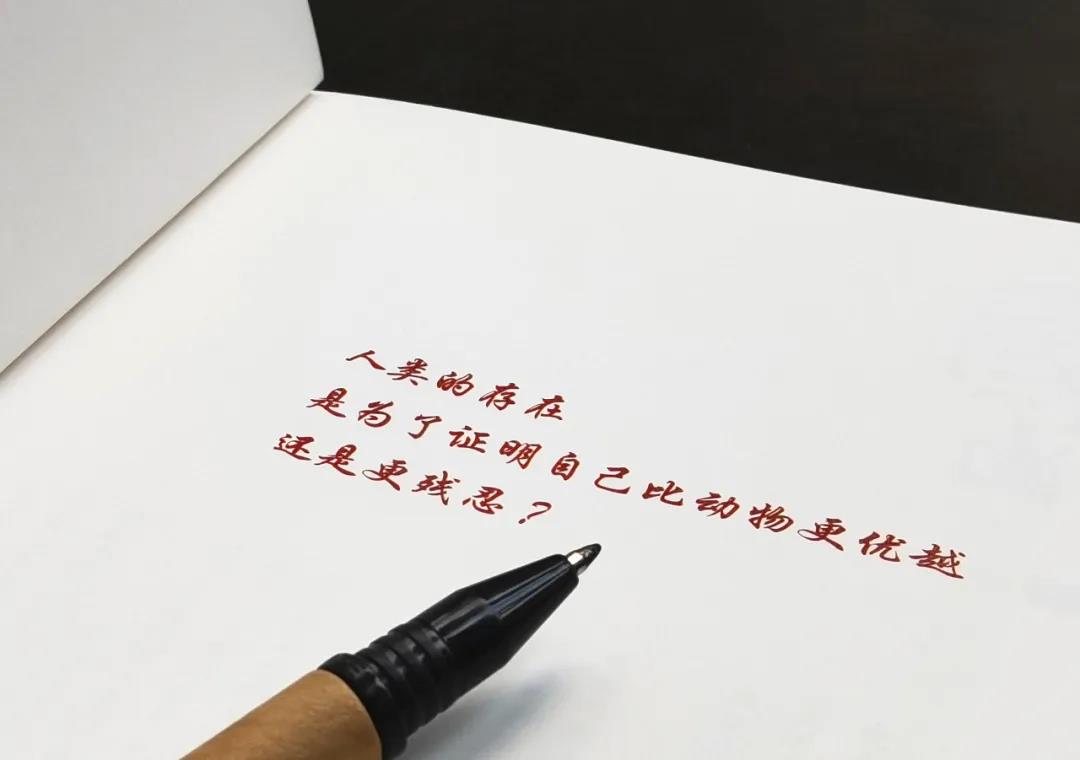 人类的存在
是为了证明自己比动物更优越
还是更残忍？